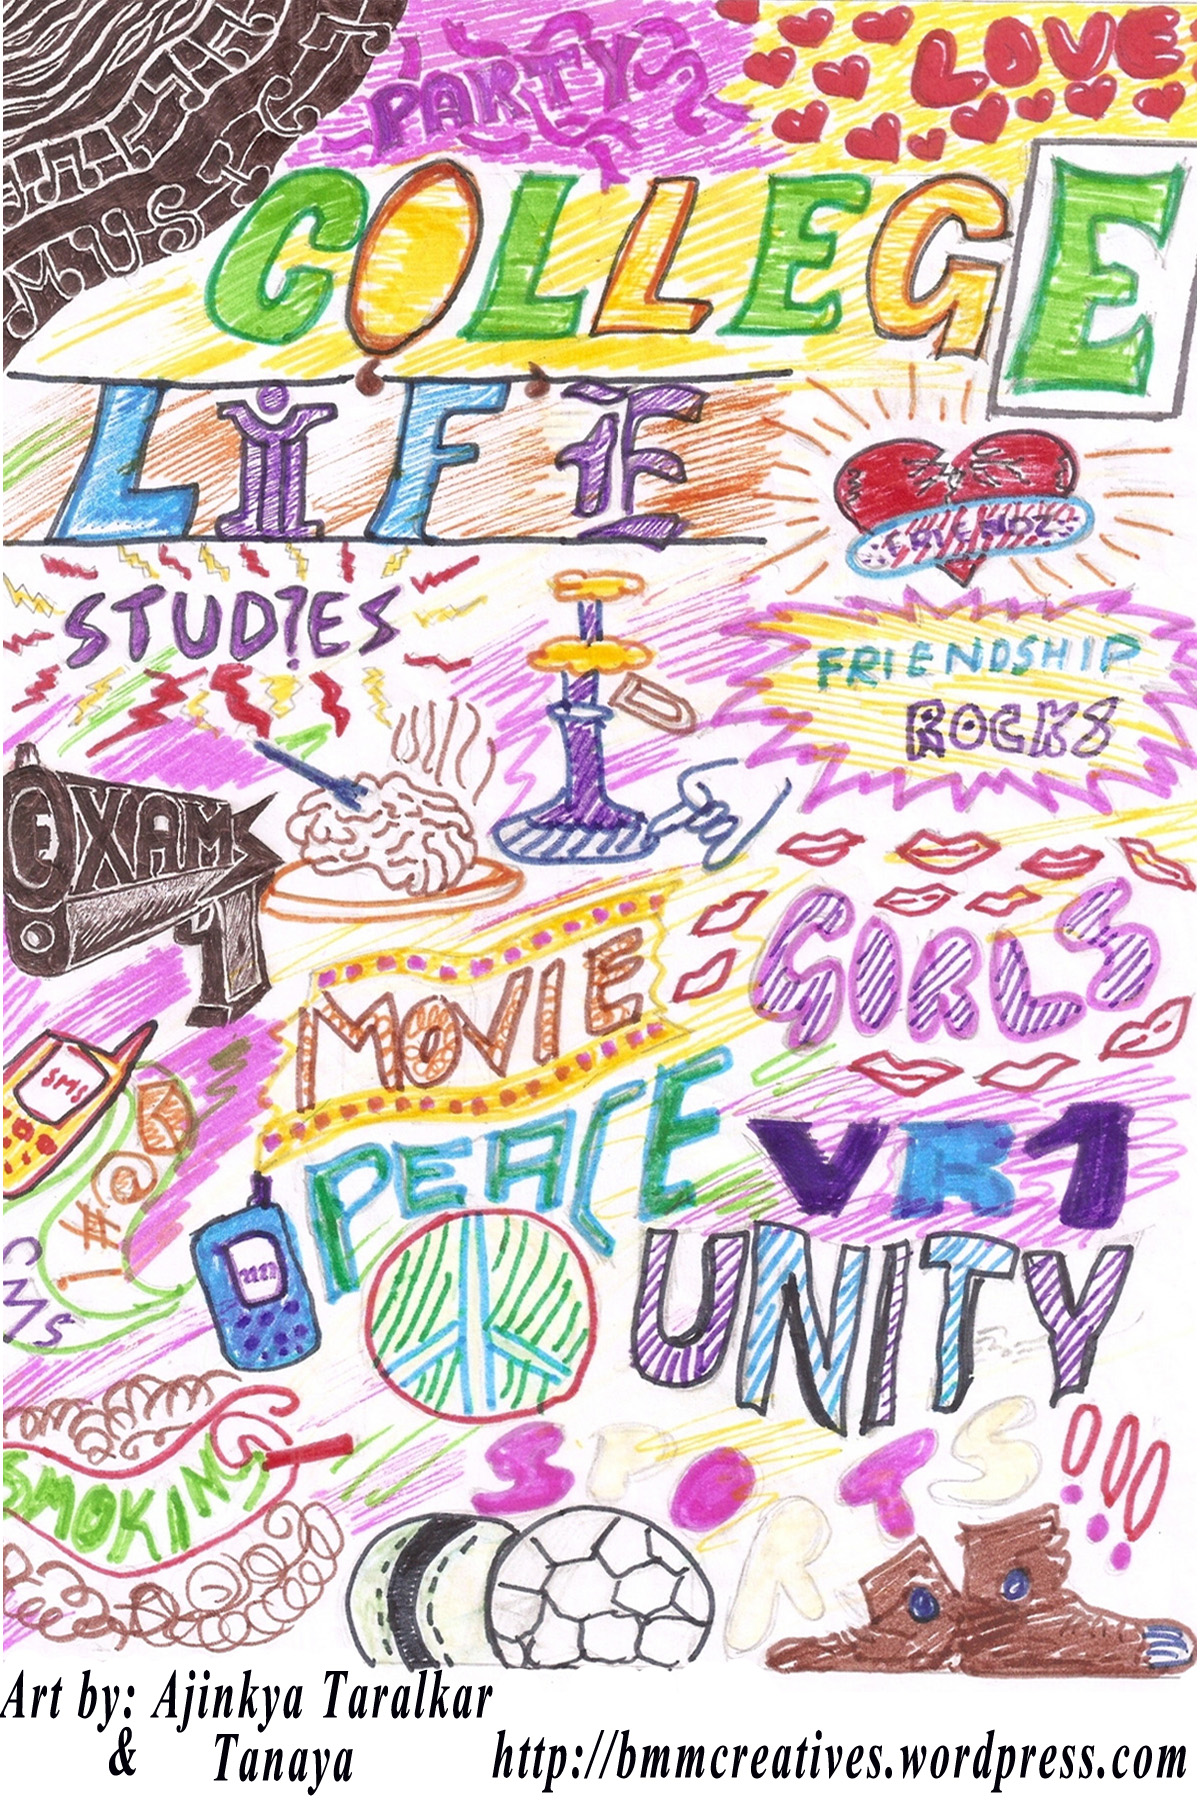 MUSIC
PARTY
LOVE
COLLEGE
LIFE
STUDIES
FRIENDSHIP
ROCKS
EXAM
GIRLS
MOVIE
SMS
!#@
SMS
PEACE
VR1
UNITY
SMOKING
SPORTS!!!
Art by: Ajinkya Taralkar
& Tanaya
http://bmmcreatives.wordpress.com